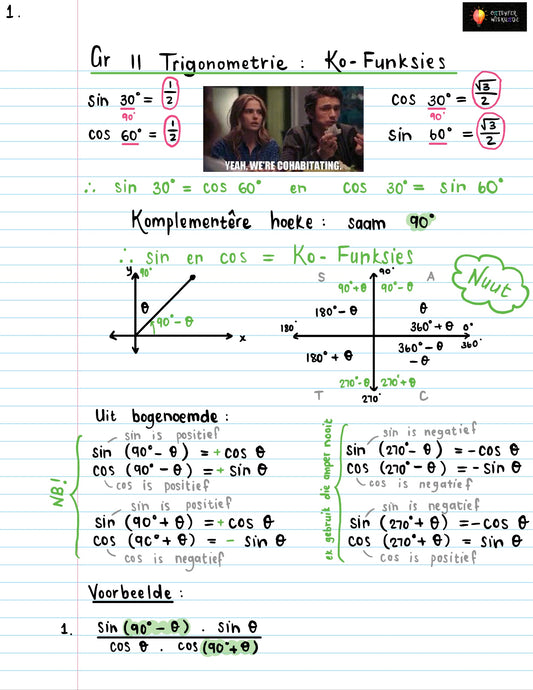 1.
OKTENFER WISKUNDE
Gr 11 Trigonometrie : Ko-Funksies
sin 30° = 1/2
90°
cos 60° = 1/2
YEAH, WE'RE COHABITATING.
cos 30° = √3/2
90°
sin 60° = √3/2
∴ sin 30° = cos 60° en cos 30° = sin 60°
Komplementêre hoeke : saam 90°
∴ sin en cos = Ko-Funksies
y 90°
θ
90° - θ
x
Nuut
S 90° A
90° + θ 90° - θ
180° - θ θ
360° + θ 0°
180° 360°
180° + θ 360° - θ
- θ
270° - θ 270° + θ
T 270° C
Uit bogenoemde :
NB!
sin is positief
sin (90° - θ) = + cos θ
cos (90° - θ) = + sin θ
cos is positief
sin is positief
sin (90° + θ) = + cos θ
cos (90° + θ) = - sin θ
cos is negatief
ek gebruik die amper nooit
sin is negatief
sin (270° - θ) = - cos θ
cos (270° - θ) = - sin θ
cos is negatief
sin is negatief
sin (270° + θ) = - cos θ
cos (270° + θ) = sin θ
cos is positief
Voorbeelde :
1. sin (90° - θ) . sin θ
cos θ . cos (90° + θ)